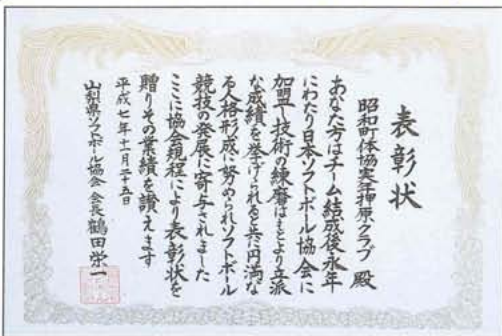 表彰状
昭和町体協実年押原クラブ 殿
あなた方はチーム結成後永年
にわたり日本ソフトボール協会に
加盟し技術の練磨はもとより立派
な成績を挙げられると共に円満な
る人格形成に努められソフトボール
競技の発展に寄与されました
ここに協会規程により表彰状を
贈りその業績を讃えます
平成七年十一月二十五日
山梨県ソフトボール協会 会長 鶴田栄一